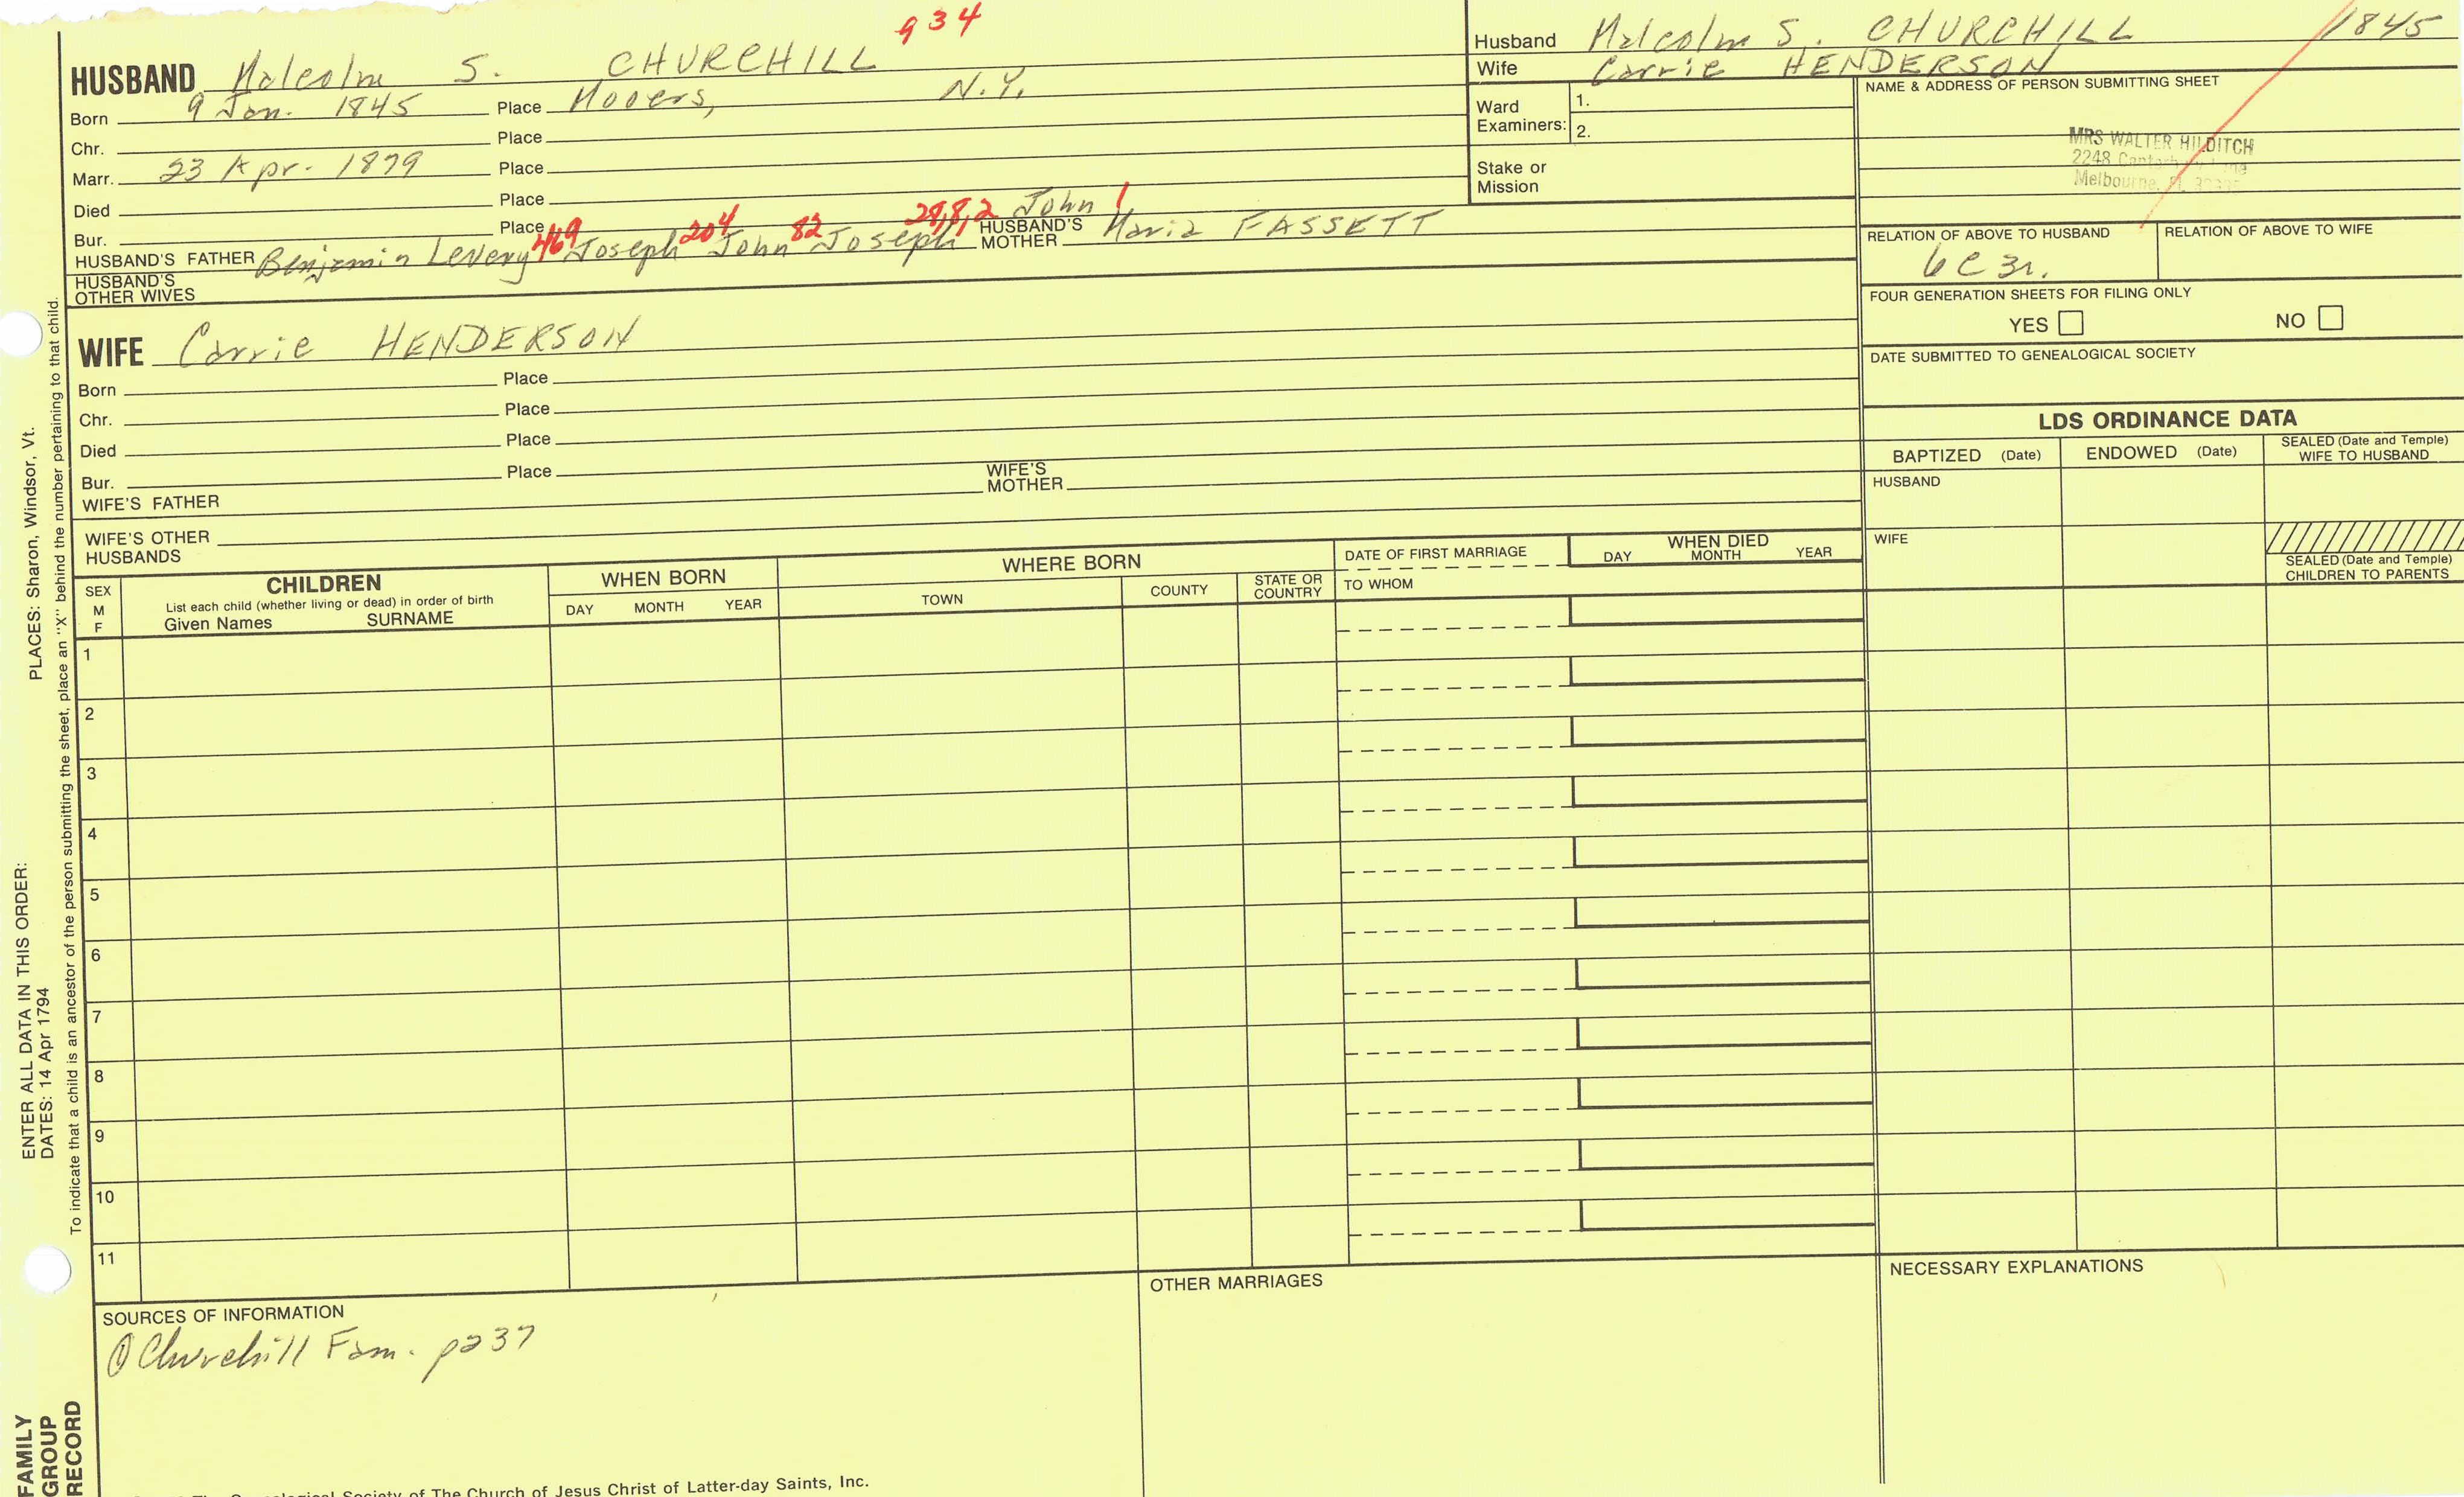 934
HUSBAND Malcolm S. CHURCHILL
Born 9 Jan. 1845 Place Mooers, N.Y.
Chr. Place
Marr. 23 Apr. 1879 Place
Died Place
Bur. Place
HUSBAND'S FATHER Benjamin Levery 469 Joseph 204 John 82 Joseph 28,8,2 John 1 HUSBAND'S MOTHER Maria FASSETT
HUSBAND'S OTHER WIVES
WIFE Carrie HENDERSON
Born Place
Chr. Place
Died Place
Bur. Place
WIFE'S FATHER WIFE'S MOTHER
WIFE'S OTHER HUSBANDS
Husband Malcolm S. CHURCHILL 1845
Wife Carrie HENDERSON
Ward Examiners: 1.
2.
Stake or Mission
NAME & ADDRESS OF PERSON SUBMITTING SHEET
MRS WALTER HILDITCH
2248
Melbourne,
RELATION OF ABOVE TO HUSBAND RELATION OF ABOVE TO WIFE
6C3r.
FOUR GENERATION SHEETS FOR FILING ONLY
YES NO
DATE SUBMITTED TO GENEALOGICAL SOCIETY
LDS ORDINANCE DATA
BAPTIZED (Date) ENDOWED (Date) SEALED (Date and Temple) WIFE TO HUSBAND
HUSBAND
WIFE
SEALED (Date and Temple) CHILDREN TO PARENTS
SEX M F
CHILDREN
List each child (whether living or dead) in order of birth
Given Names SURNAME
WHEN BORN
DAY MONTH YEAR
WHERE BORN
TOWN COUNTY STATE OR COUNTRY
DATE OF FIRST MARRIAGE
TO WHOM
WHEN DIED
DAY MONTH YEAR
1
2
3
4
5
6
7
8
9
10
11
SOURCES OF INFORMATION
① Churchill Fam. p237
OTHER MARRIAGES
NECESSARY EXPLANATIONS
ENTER ALL DATA IN THIS ORDER:
DATES: 14 Apr 1794
PLACES: Sharon, Windsor, Vt.
To indicate that a child is an ancestor of the person submitting the sheet, place an "X" behind the number pertaining to that child.
FAMILY
GROUP
RECORD
Society of The Church of Jesus Christ of Latter-day Saints, Inc.